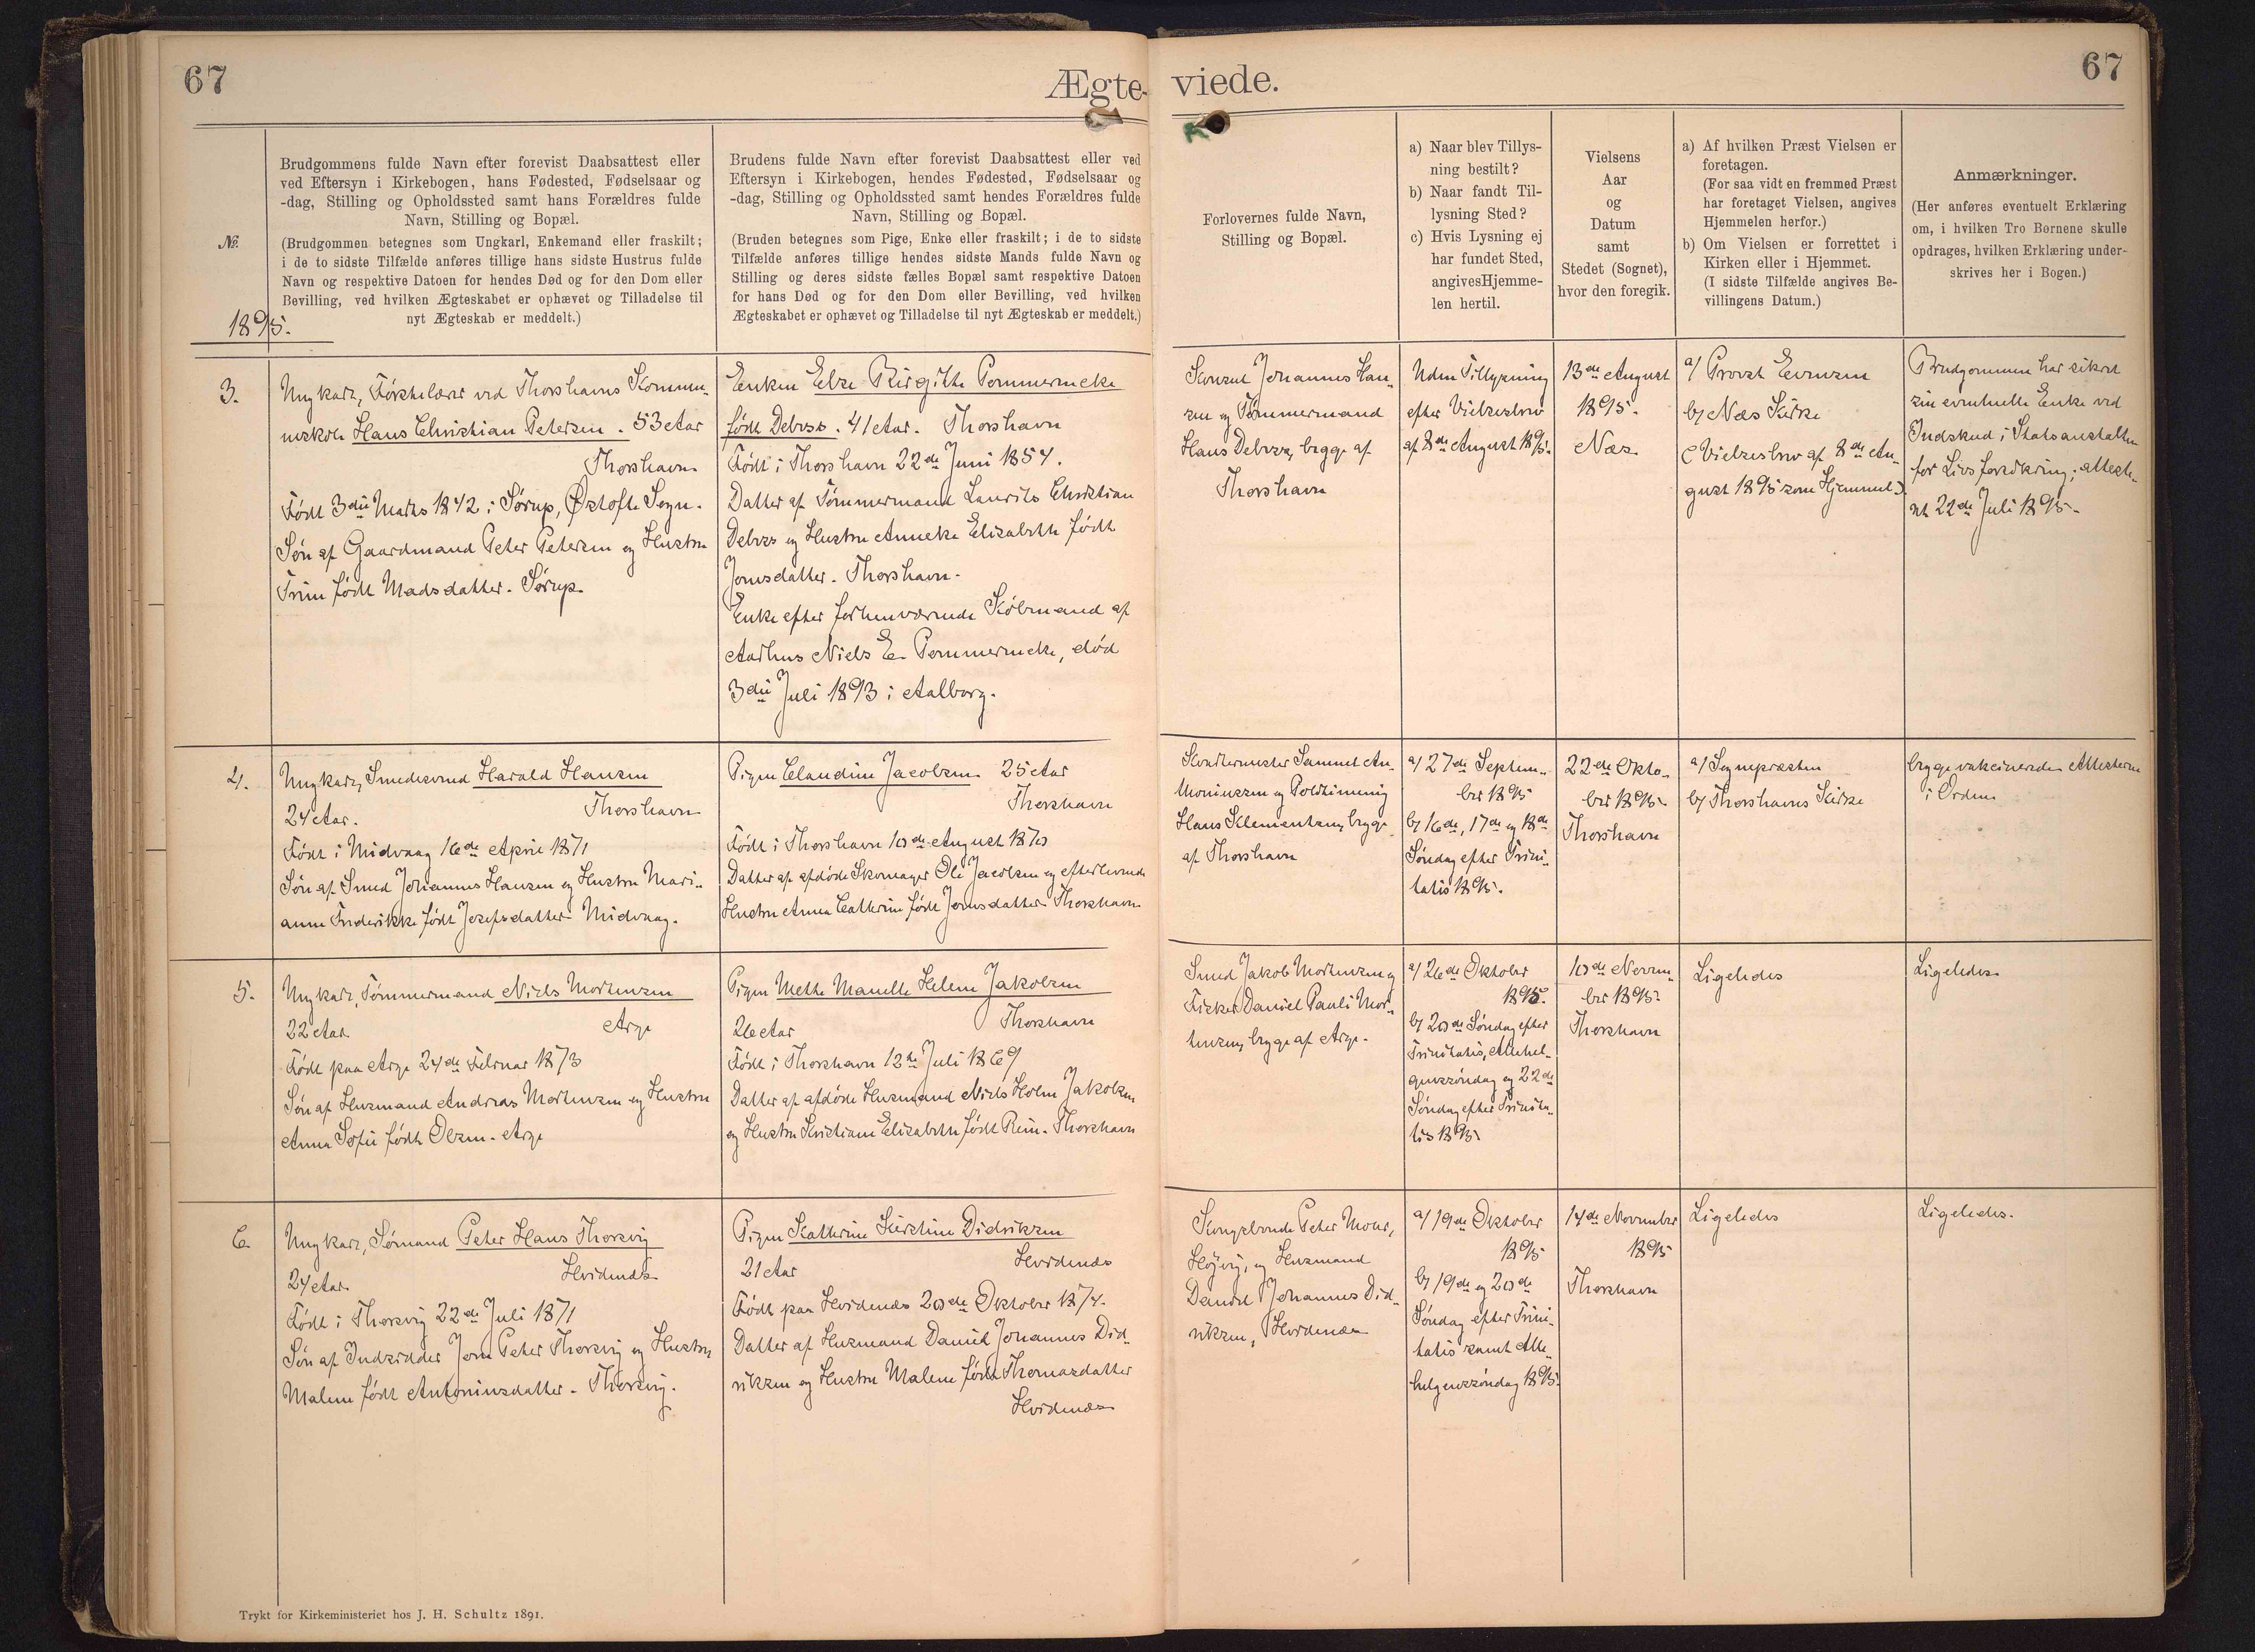 67
Ægte-
viede.
67
№
Brudgommens fulde Navn efter forevist Daabsattest eller
ved Eftersyn i Kirkebogen, hans Fødested, Fødselsaar og
-dag, Stilling og Opholdssted samt hans Forældres fulde
Navn, Stilling og Bopæl.
(Brudgommen betegnes som Ungkarl, Enkemand eller fraskilt;
i de to sidste Tilfælde anføres tillige hans sidste Hustrus fulde
Navn og respektive Datoen for hendes Død og for den Dom eller
Bevilling, ved hvilken Ægteskabet er ophævet og Tilladelse til
nyt Ægteskab er meddelt.)
Brudens fulde Navn efter forevist Daabsattest eller ved
Eftersyn i Kirkebogen, hendes Fødested, Fødselsaar og
-dag, Stilling og Opholdssted samt hendes Forældres fulde
Navn, Stilling og Bopæl.
(Bruden betegnes som Pige, Enke eller fraskilt; i de to sidste
Tilfælde anføres tillige hendes sidste Mands fulde Navn og
Stilling og deres sidste fælles Bopæl samt respektive Datoen
for hans Død og for den Dom eller Bevilling, ved hvilken
Ægteskabet er ophævet og Tilladelse til nyt Ægteskab er meddelt.)
Forlovernes fulde Navn,
Stilling og Bopæl.
a) Naar blev Tillys-
ning bestilt?
b) Naar fandt Til-
lysning Sted?
c) Hvis Lysning ej
har fundet Sted,
angivesHjemme-
len hertil.
Vielsens
Aar
og
Datum
samt
Stedet (Sognet),
hvor den foregik.
a) Af hvilken Præst Vielsen er
foretagen.
(For saa vidt en fremmed Præst
har foretaget Vielsen, angives
Hjemmelen herfor.)
b) Om Vielsen er forrettet i
Kirken eller i Hjemmet.
(I sidste Tilfælde angives Be-
villingens Datum.)
Anmærkninger.
(Her anføres eventuelt Erklæring
om, i hvilken Tro Børnene skulle
opdrages, hvilken Erklæring under-
skrives her i Bogen.)
1895.
3.
Ungkarl, Førstelærer ved Thorshavns Kommu-
neskole Hans Christian Petersen. 53 Aar
Thorshavn
Født 3die Marts 1842 i Sørup, Østofte Sogn.
Søn af Gaardmand Peter Petersen og Hustru
Trine født Madsdatter. Sørup.
Enken Else Birgitte Pommerencke
født Debess. 41 Aar. Thorshavn
Født i Thorshavn 22de Juni 1854.
Datter af Tømmermand Laurits Christian
Debess og Hustru Anneke Elisabeth født
Joensdatter. Thorshavn.
Enke efter forhenværende Købmand af
Aarhus Niels E. Pommerencke, død
3die Juli 1893 i Aalborg.
Konsul Johannes Han-
sen og Tømmermand
Hans Debess, begge af
Thorshavn
Uden Tillysning
efter Vielsesbrev
af 8de August 1895.
13de August
1895.
Næs
a/ Provst Evensen
b/ Næs Kirke
(Vielsesbrev af 8de Au-
gust 1895 som Hjemmel.)
Brudgommen har sikret
sin eventuelle Enke ved
Indskud i Statsanstalten
for Livsforsikring; atteste-
ret 22de Juli 1895.
4.
Ungkarl, Smedesvend Harald Hansen
24 Aar. Thorshavn
Født i Midvaag 16de April 1871
Søn af Smed Johannes Hansen og Hustru Mari-
anne Frederikke født Josefsdatter. Midvaag.
Pigen Claudine Jacobsen 25 Aar
Thorshavn
Født i Thorshavn 10de August 1870
Datter af afdøde Skomager Ole Jacobsen og efterlevende
Hustru Anna Cathrine født Joensdatter. Thorshavn
Kvartermester Samuel An-
thoniussen og Politimenig
Hans Klementsen, begge
af Thorshavn
a/ 27de Septem-
ber 1895
b/ 16de, 17de og 18de
Søndag efter Trini-
tatis 1895.
22de Okto-
ber 1895.
Thorshavn
a/ Sognepræsten
b/ Thorshavns Kirke
begge vakcinerede. Attesterne
i Orden
5.
Ungkarl, Tømmermand Niels Mortensen
22 Aar Arge
Født paa Arge 24de Februar 1873
Søn af Husmand Andreas Mortensen og Hustru
Anna Sofie født Olsen. Arge
Pigen Mette Manette Helene Jakobsen
26 Aar Thorshavn
Født i Thorshavn 12te Juli 1869
Datter af afdøde Husmand Niels Holm Jakobsen
og Hustru Kristiane Elisabeth født Rein. Thorshavn
Smed Jakob Mortensen og
Fisker Daniel Pauli Mor-
tensen, begge af Arge.
a/ 26de Oktober
1895.
b/ 20de Søndag efter
Trinitatis, Allehel-
genssøndag og 22de
Søndag efter Trinita-
tis 1895
10de Novem-
ber 1895.
Thorshavn
Ligeledes
Ligeledes
6.
Ungkarl, Sømand Peter Hans Thorsvig
24 Aar Hvidenæs
Født i Thorsvig 22de Juli 1871
Søn af Indsidder Joen Peter Thorsvig og Hustru
Malene født Antoniusdatter. Thorsvig.
Pigen Kathrine Kirstine Didriksen
21 Aar Hvidenæs
Født paa Hvidenæs 20de Oktober 1874.
Datter af Husmand Daniel Johannes Did-
riksen og Hustru Malene født Thomasdatter
Hvidenæs
Kongsbonde Peter Mohr,
Höjvig, og Husmand
Daniel Johannes Did-
riksen, Hvidenæs
a/ 19de Oktober
1895
b/ 19de og 20de
Søndag efter Trini-
tatis samt Alle-
helgenssøndag 1895.
14de November
1895
Thorshavn
Ligeledes
Ligeledes.
Trykt for Kirkeministeriet hos J. H. Schultz 1891.